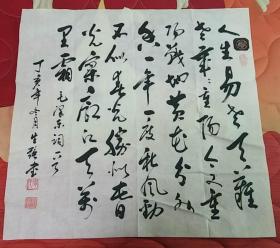 人生易老天難
老岁岁重阳今又重
阳战地黄花分外
香一年一度秋风劲
不似春光勝似春
光寥廓江天萬
里霜 毛泽东词一首
丁亥年冬月